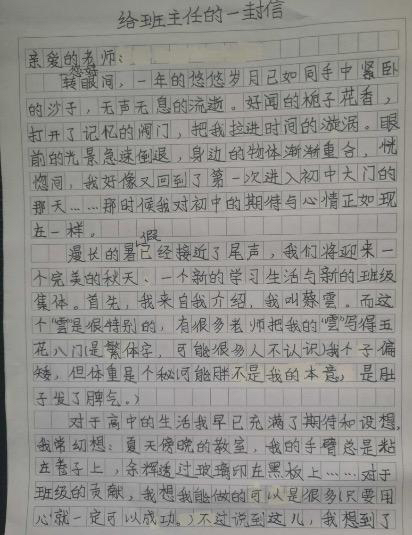 给班主任的一封信
亲爱的老师：
您好
转眼间，一年的悠悠岁月已如同手中紧卧
的沙子，无声无息的流逝。好闻的栀子花香，
打开了记忆的阀门，把我拉进时间的漩涡。眼
前的光景急速倒退，身边的物体渐渐重合，恍
惚间，我好像又回到了第一次进入初中大门的
那天……那时候我对初中的期待与心情正如现
在一样。
漫长的暑假已经接近了尾声，我们将迎来一
个完美的秋天、一个新的学习生活与新的班级
集体。首先，我来自我介绍，我叫蔡雲。而这
个"雲"是很特别的，有很多老师把我的"雲"写得五
花八门(是繁体字，可能很多人不认识)我个子偏
矮，但体重是个秘(可能胖不是我的本意，是肚
子发了脾气。)
对于高中的生活我早已充满了期待和设想，
我常幻想：夏天傍晚的教室，我的手臂总是粘
在卷子上，余辉透过玻璃印在黑板上……对于
班级的贡献，我想我能做的可以是很多(只要用
心就一定可以成功。)不过说到这儿，我想到了